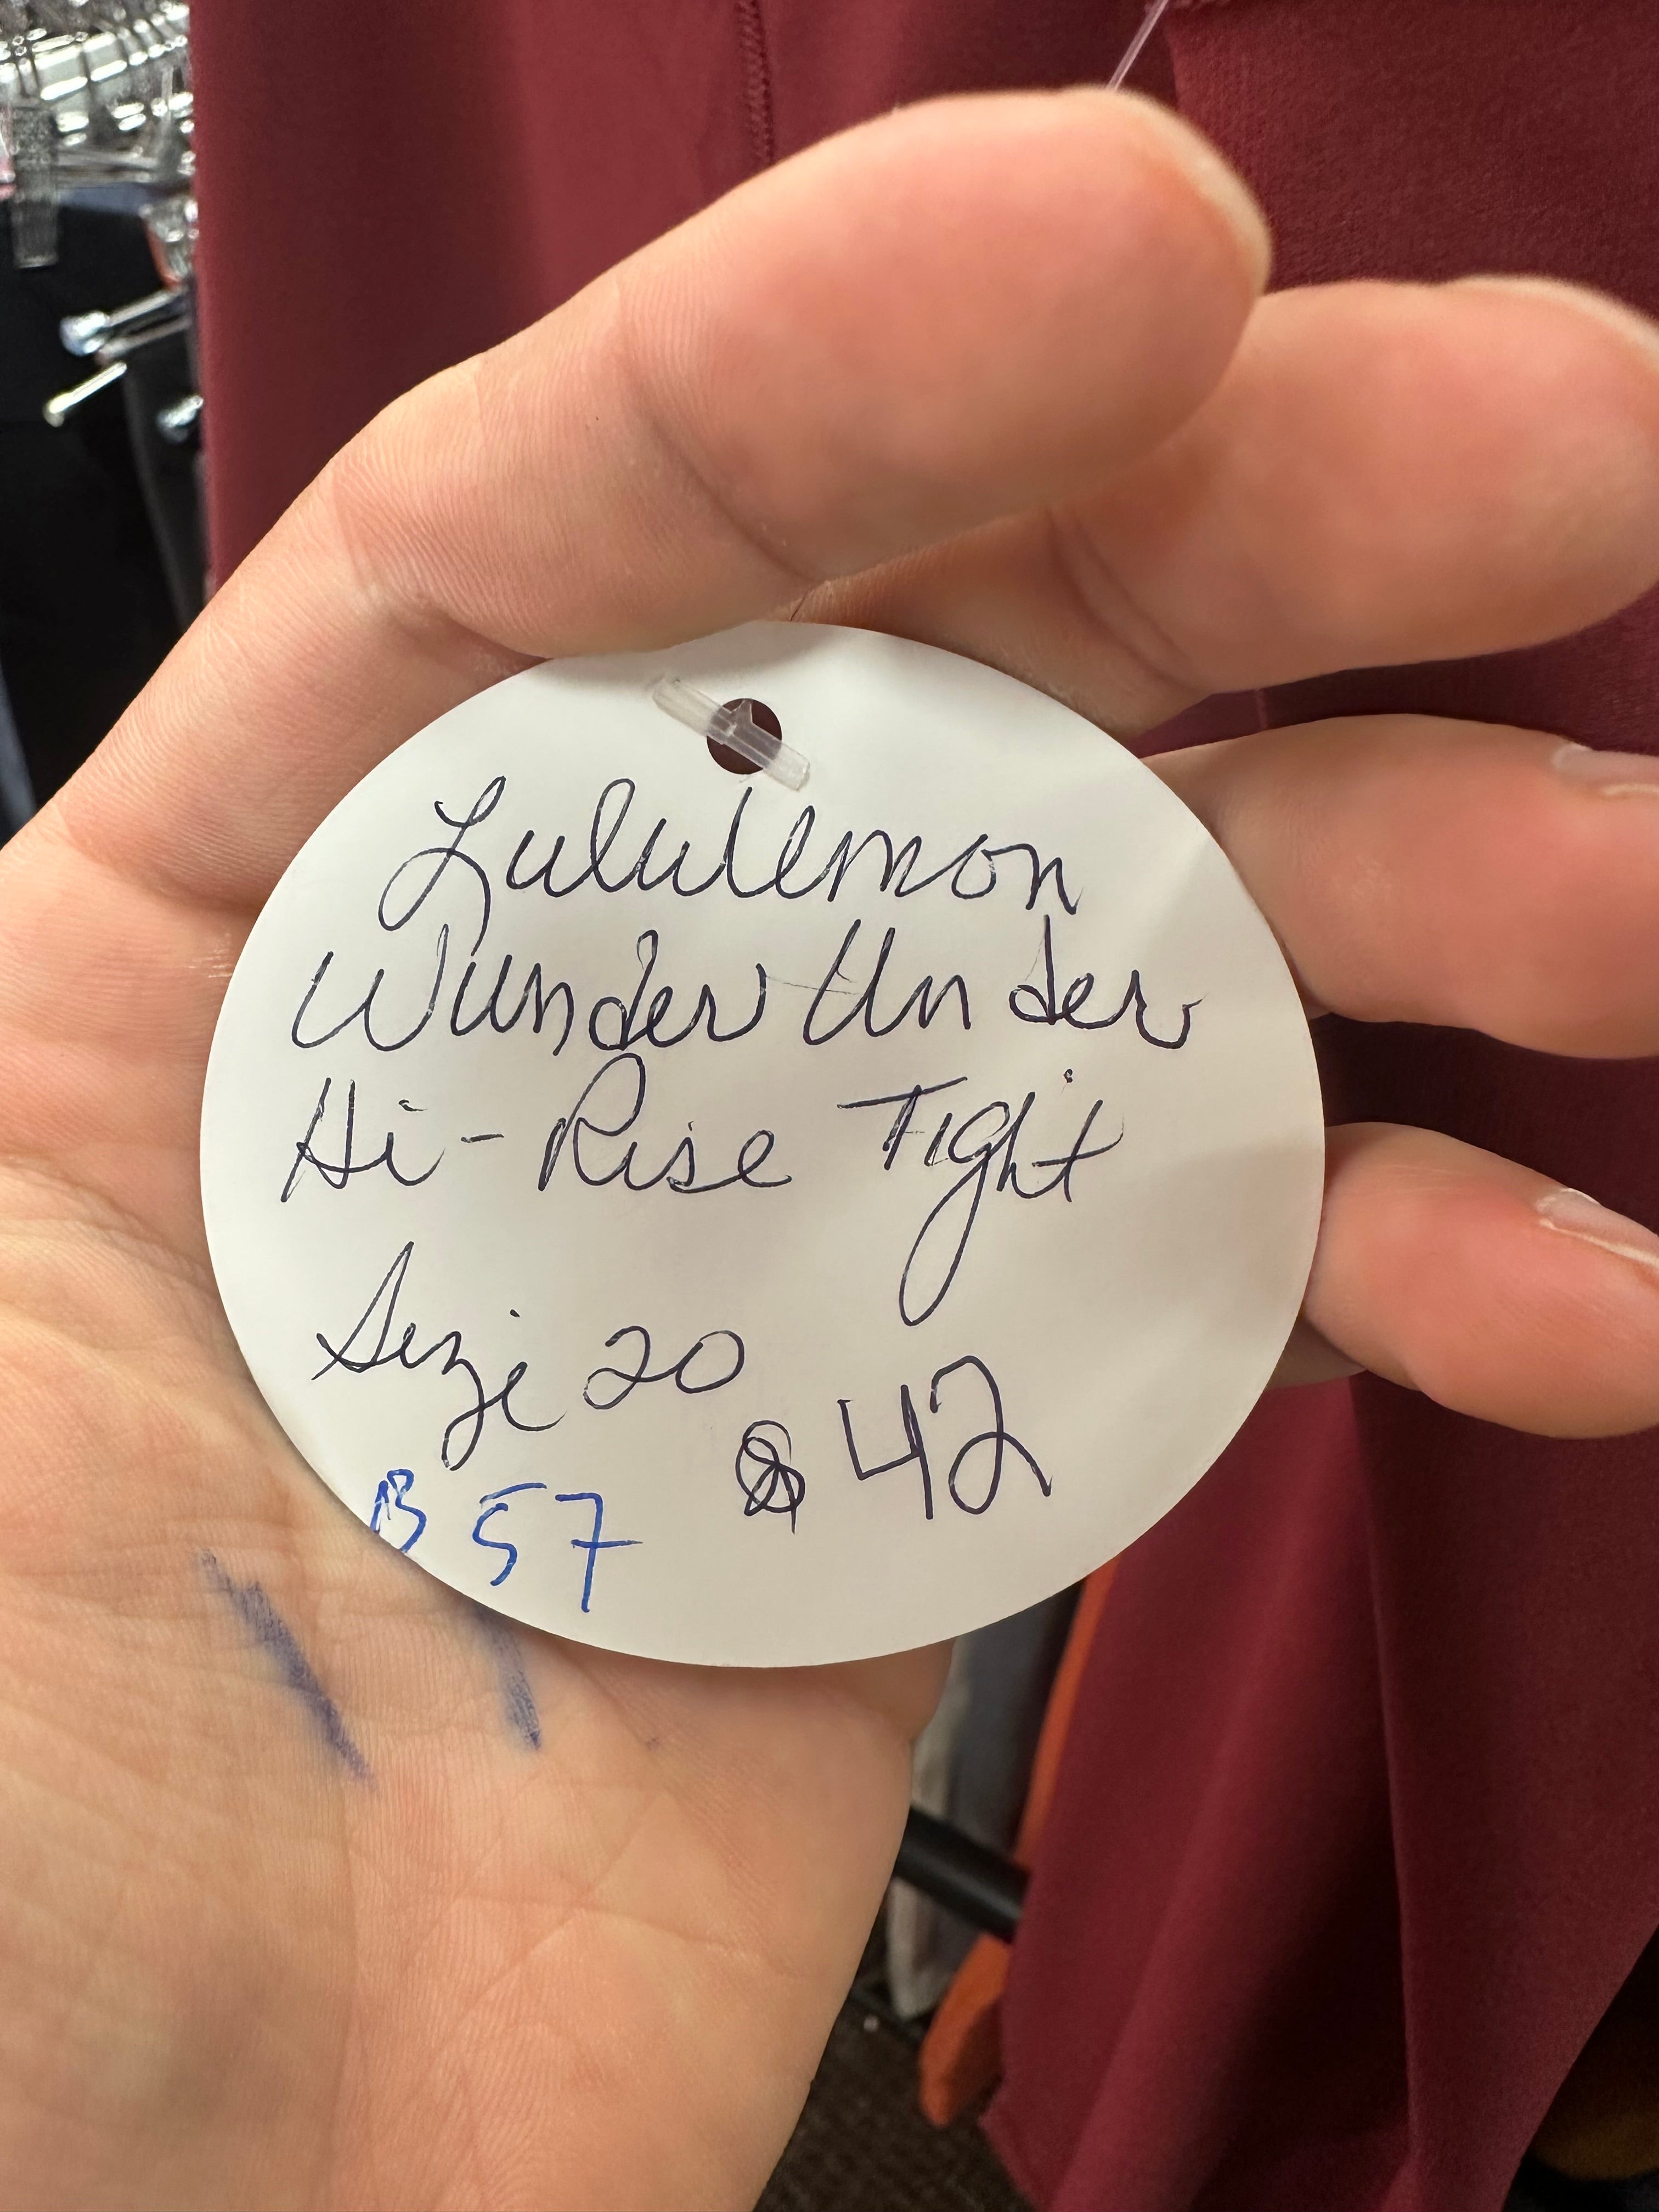 Lululemon
Wunder Under
Hi-Rise Tight
Size 20
$42
B 57